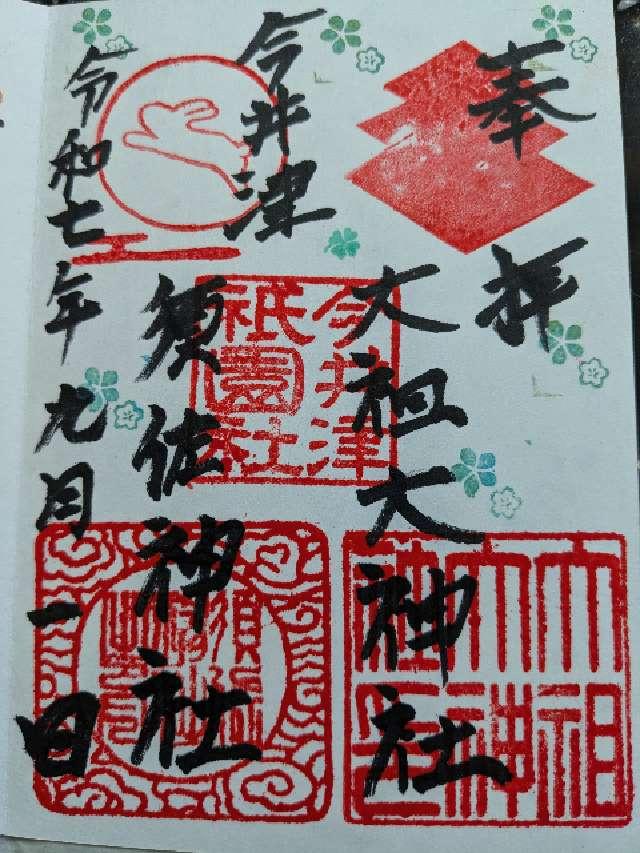 奉拝
大祖大神社
今井津
須佐神社
令和七年九月一日
今井津
祇園社
大祖
大神
社印
須佐
神社